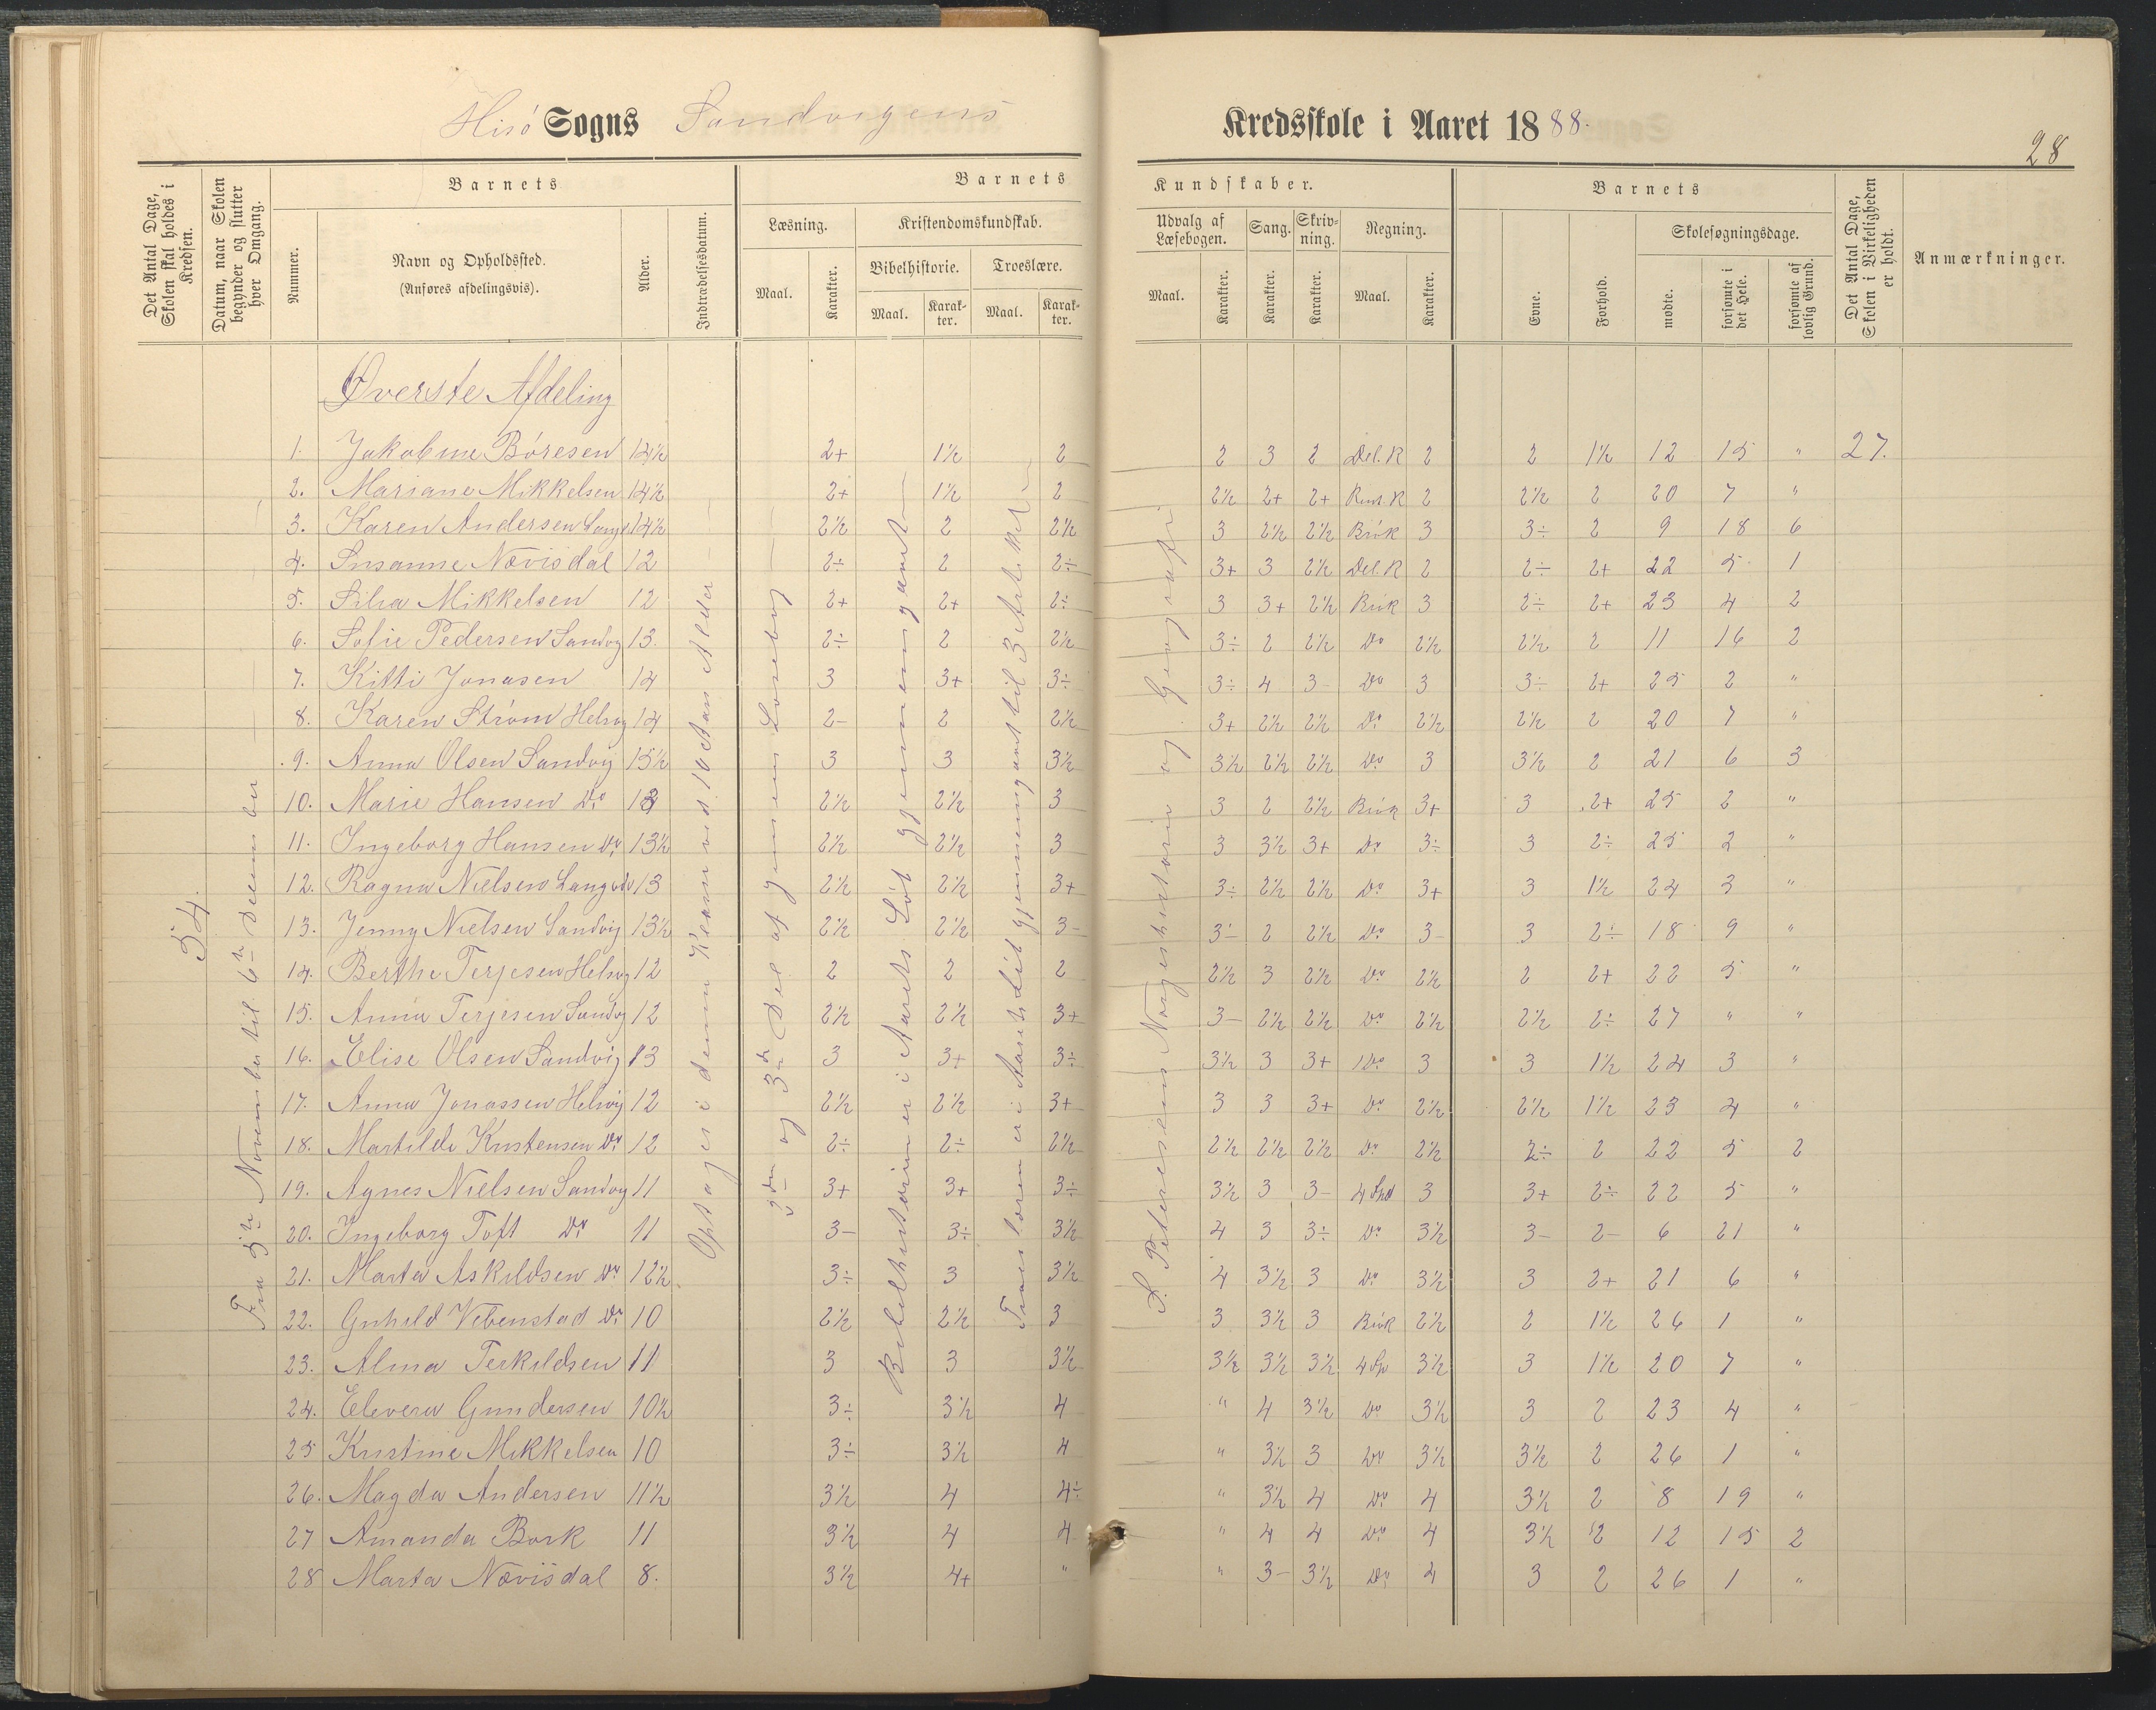 Hisö Sogns Sandvigens Kredsskole i Aaret 1888.
28
Det Antal Dage, Skolen skal holdes i Kredsen.
Datum, naar Skolen begynder og slutter hver Omgang.
Barnets
Nummer.
Navn og Opholdssted.
(Anføres afdelingsvis).
Alder.
Indtrædelsesdatum.
Barnets Kundskaber.
Læsning.
Maal.
Karakter.
Kristendomskundskab.
Bibelhistorie.
Maal.
Karakter.
Troeslære.
Maal.
Karakter.
Udvalg af Læsebogen.
Maal.
Karakter.
Sang.
Karakter.
Skrivning.
Karakter.
Regning.
Maal.
Karakter.
Barnets
Evne.
Forhold.
Skolesøgningsdage.
mødte.
forsømte i det Hele.
forsømte af lovlig Grund.
Det Antal Dage, Skolen i Virkeligheden er holdt.
Anmærkninger.
54.
Fra 5te November til 6te December
Optages i denne Klasse ved 10 Aars Alder
2den og 3die Del af Jensens Læsebog
Bibelhistorien er i Aarets Løb gjennemgaaet
Troeslæren er i Aarets Løb gjennemgaaet til 3 Artikel
S. Petersens Norgeshistorie og Geografi
Øverste Afdeling
1. Jakobine Böresen 14½ 2+ 1½ 2 2 3 2 Del. R 2 2 1½ 12 15 " 27.
2. Mariane Mikkelsen 14½ 2+ 1½ 2 2½ 2+ 2+ Rent. R 2 2½ 2 20 7 "
3. Karen Andersen Langs. 14½ 2½ 2 2½ 3 2½ 2½ Brök 3 3÷ 2 9 18 6
4. Susanne Nævisdal 12 2÷ 2 2÷ 3+ 3 2½ Del. R 2 2÷ 2+ 22 5 1
5. Silia Mikkelsen 12 2+ 2+ 2÷ 3 3+ 2½ Brök 3 2÷ 2+ 23 4 2
6. Sofie Pedersen Sandvg 13. 2÷ 2 2½ 3÷ 2 2½ Do 2½ 2½ 2 11 16 2
7. Kitti Jonasen 14 3 3+ 3÷ 3÷ 4 3- Do 3 3÷ 2+ 25 2 "
8. Karen Ström Helvig 14 2- 2 2½ 3+ 2½ 2½ Do 2½ 2½ 2 20 7 "
9. Anna Olsen Sandvig 15½ 3 3 3½ 3½ 2½ 2½ Do 3 3½ 2 21 6 3
10. Marie Hansen Do 13 2½ 2½ 3 3 2 2½ Brök 3+ 3 2+ 25 2 "
11. Ingeborg Hansen Do 13½ 2½ 2½ 3 3 3½ 3+ Do 3÷ 3 2÷ 25 2 "
12. Ragna Nielsen Langsdv 13 2½ 2½ 3+ 3÷ 2½ 2½ Do 3+ 3 1½ 24 3 "
13. Jenny Nielsen Sandvig 13½ 2½ 2½ 3- 3- 2 2½ Do 3- 3 2÷ 18 9 "
14. Berthe Terjesen Helvig 12 2 2 2 2½ 3 2½ Do 2½ 2 2+ 22 5 "
15. Anna Terjesen Sandvg 12 2½ 2½ 3+ 3- 2½ 2½ Do 2½ 2½ 2÷ 27 " "
16. Elise Olsen Sandvig 13 3 3+ 3÷ 3½ 3 3+ Do 3 3 1½ 24 3 "
17. Anna Jonassen Helvig 12 2½ 2½ 3+ 3 3 3+ Do 2½ 2½ 1½ 23 4 "
18. Martilde Kristensen Do 12 2÷ 2÷ 2½ 2½ 2½ 2½ Do 2½ 2÷ 2 22 5 2
19. Agnes Nielsen Sandvg 11 3+ 3+ 3÷ 3½ 3 3- 4 Spd 3 3+ 2÷ 22 5 "
20. Ingeborg Toft Do 11 3- 3÷ 3½ 4 3 3÷ Do 3½ 3- 2- 6 21 "
21. Marta Askildsen Do 12½ 3÷ 3 3½ 4 3½ 3 Do 3½ 3 2+ 21 6 "
22. Gnhild Vebenstad Do 10 2½ 2½ 3 3 3½ 3 Brök 2½ 2 1½ 26 1 "
23. Alma Terkildsen 11 3 3 3½ 3½ 3½ 3½ 4 Sp 3½ 3 1½ 20 7 "
24. Elevera Gundersen 10½ 3÷ 3½ 4 " 4 3½ Do 3½ 3 2 23 4 "
25 Kristine Mikkelsen 10 3÷ 3½ 4 " 3½ 3 Do 3½ 3½ 2 26 1 "
26. Magda Andersen 11½ 3½ 4 4÷ " 3½ 4 Do 4 3½ 2 8 19 "
27 Amanda Bork 11 3½ 4 4 " 4 4 Do 4 3½ 2 12 15 2
28 Marta Nævisdal 8. 3½ 4+ " " 3- 3½ Do 4 3 2 26 1 "